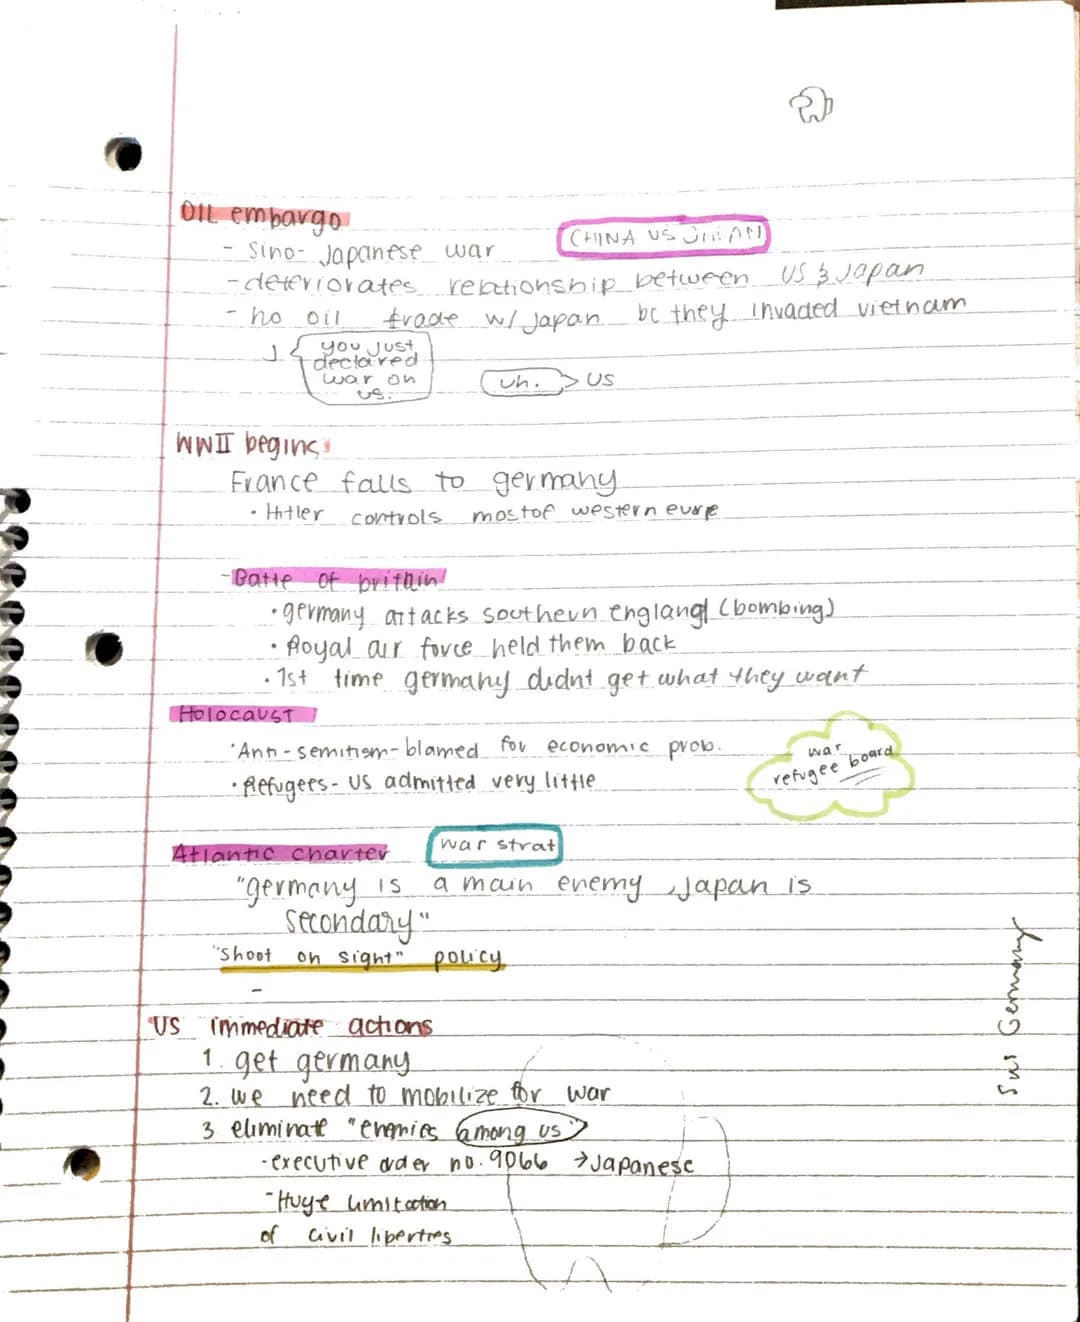 OIL embargo
- Sino-Japanese war
CHINA VS JAPAN
- deteriorates relationship between US & Japan
- no oil trade w/ Japan bc they invaded vietnam
J { you just
declared
war on
us.
uh. > US
WWII begins
France falls to germany
· Hitler controls most of western eurpe
- Batte of britain
· germany attacks southern england (bombing)
· Royal air force held them back
· 1st time germany didnt get what they want
Holocaust
· Anti-semitism - blamed for economic prob.
· Refugees - US admitted very little
war
refugee board
Atlantic charter
war strat
"germany is a main enemy, Japan is
secondary"
"shoot on sight" policy
-
US immediate actions
1. get germany
2. we need to mobilize for war
3 eliminate "enemies among us"
- executive order no. 9066 → Japanese
- Huge limitation
of civil liberties
Germany